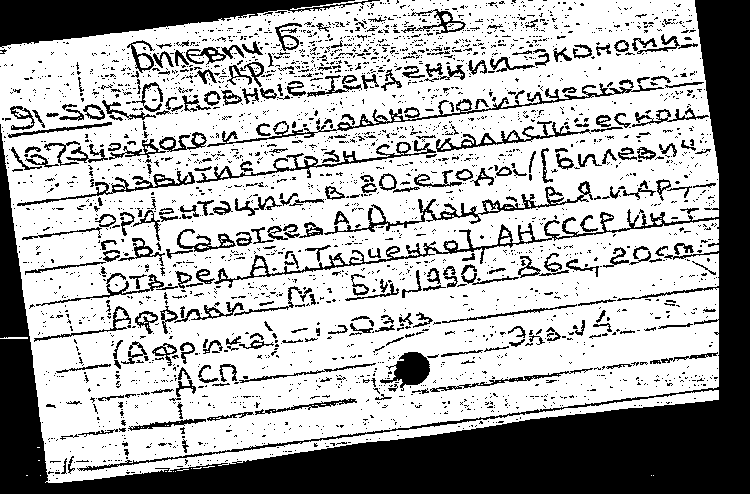 Билевич, Б В
и др.
91-50к Основные тенденции экономи-
1673 ческого и социально-политического
развития стран социалистической
ориентации в 80-е годы / [Билевич
Б.В., Саватеев А.Д., Кацман В.Я. и др.;
Отв. ред. А.А. Ткаченко]; АН СССР Ин-т
Африки - М.: Б.и, 1990 - 86с.; 20см.-
(Африка) - экз
ДСП. Экз N 4